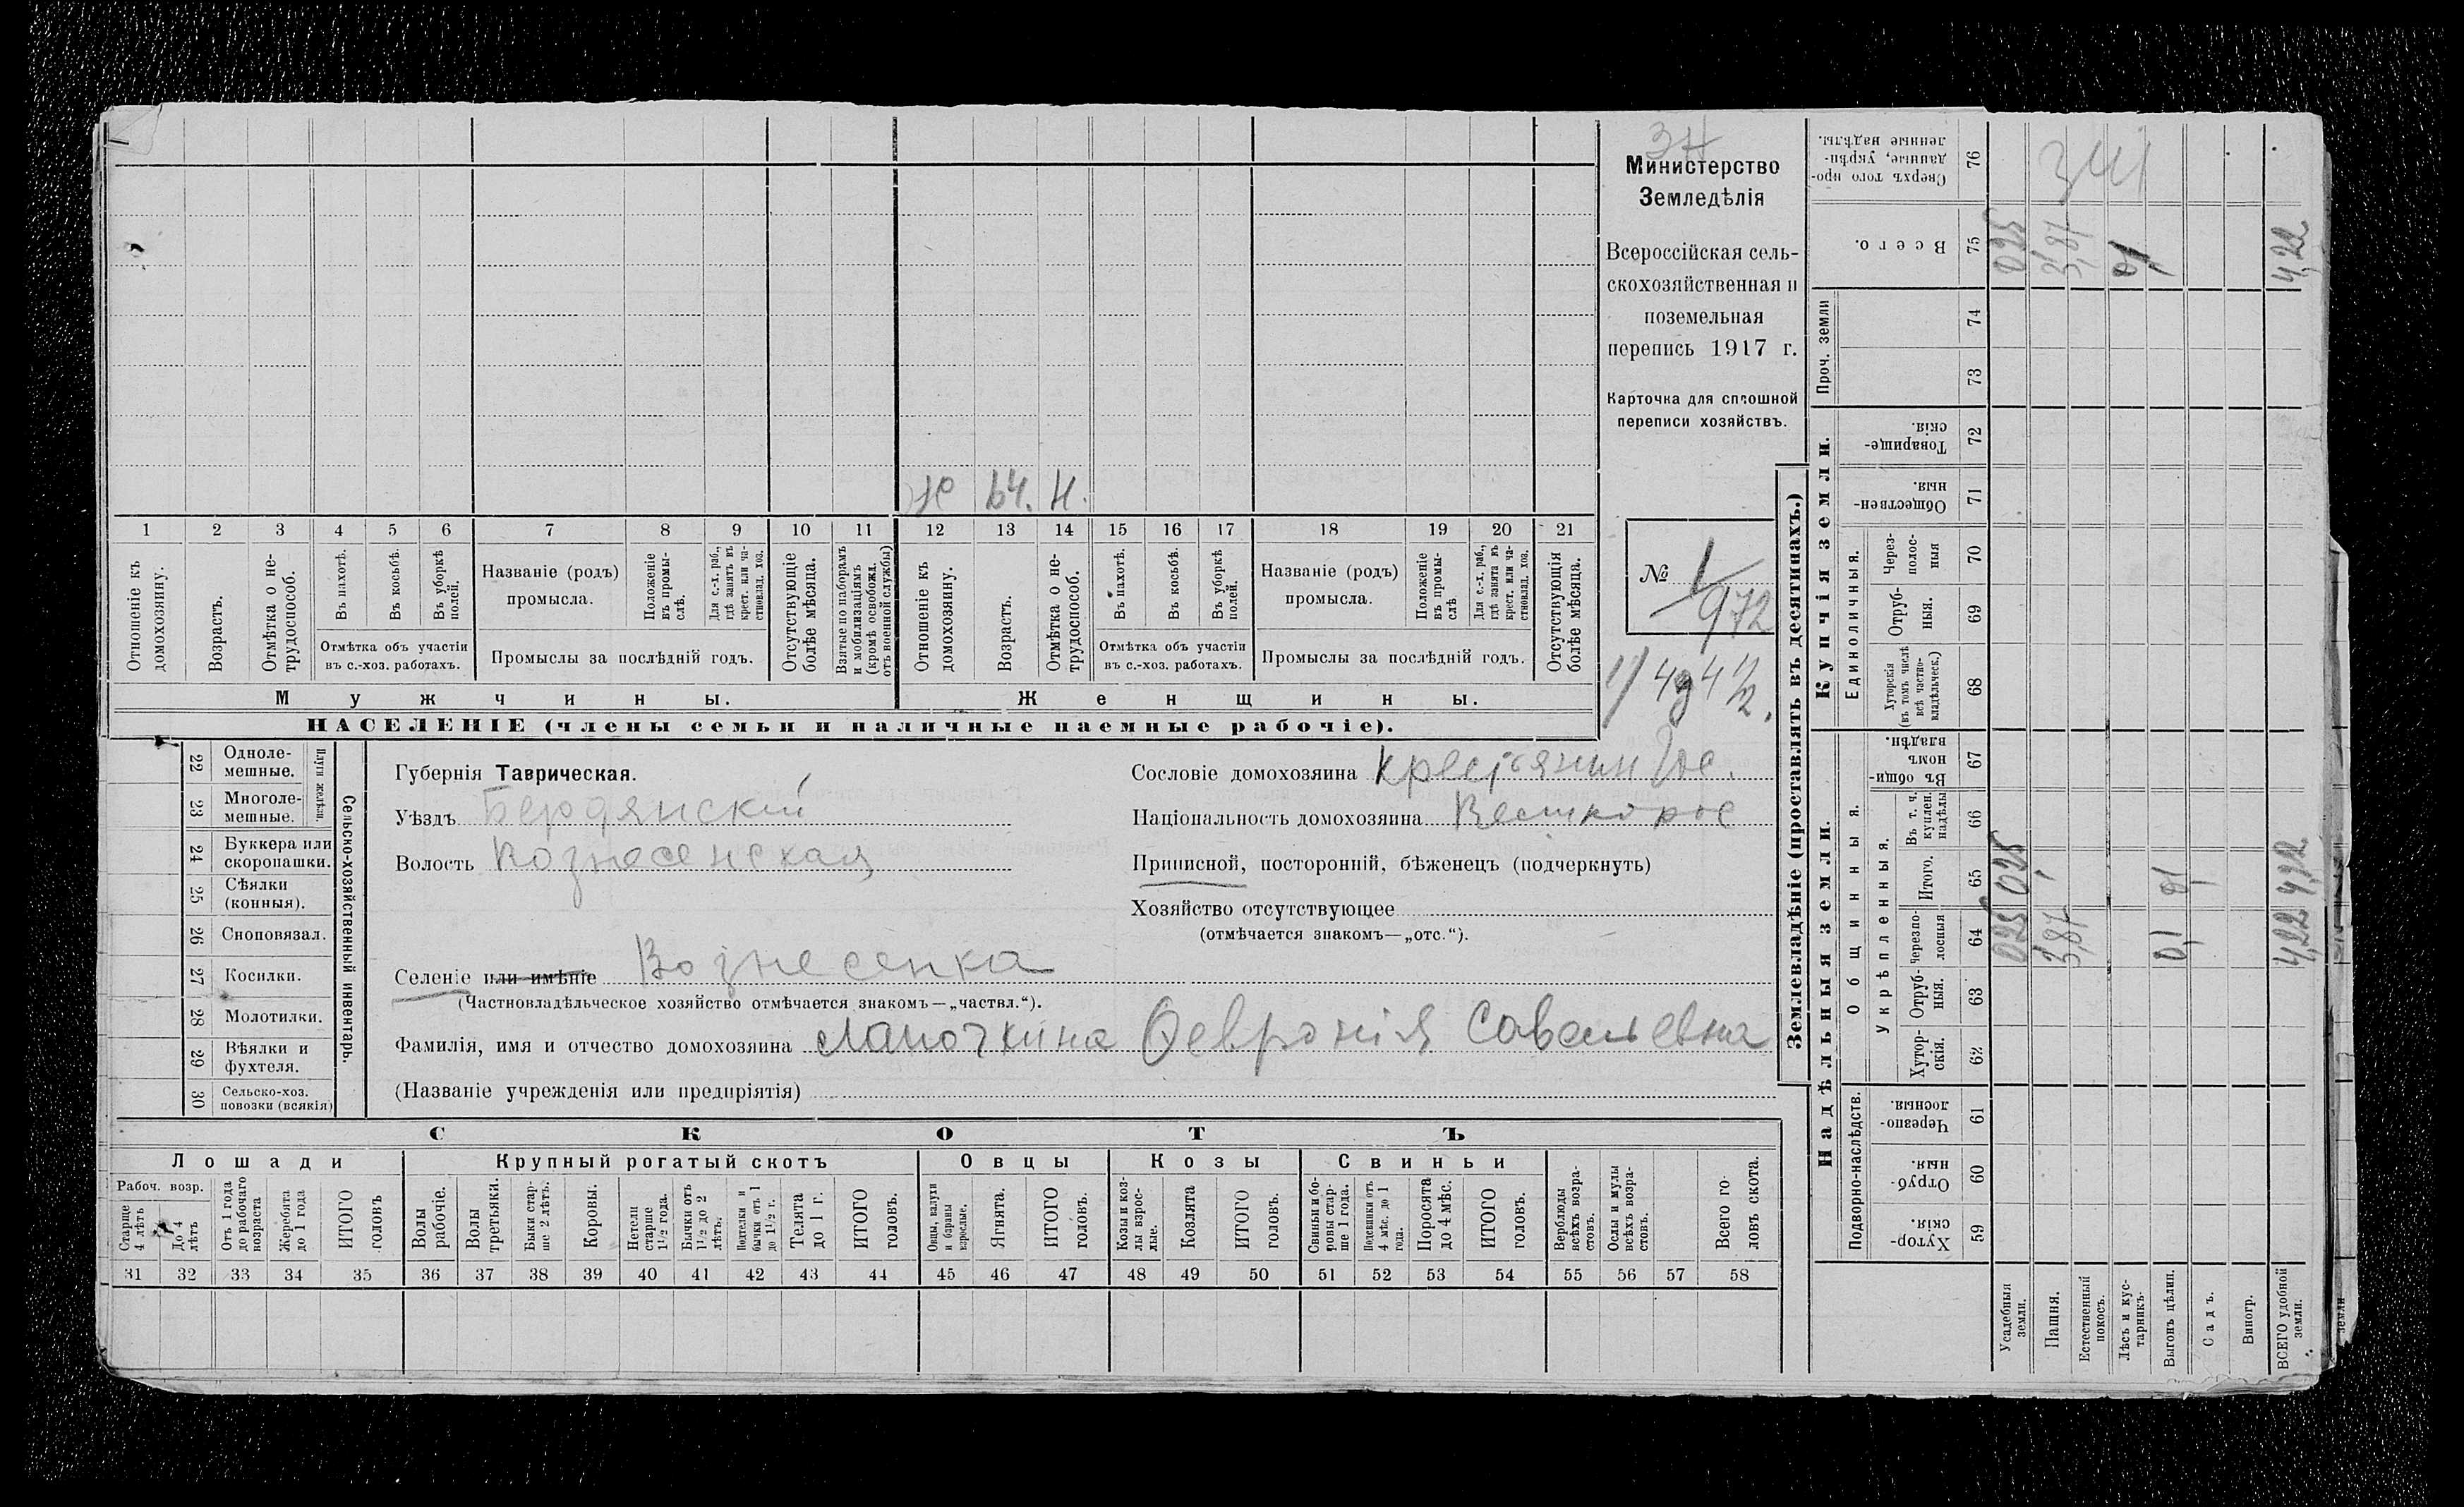 Министерство
Земледѣлія
Всероссійская сель-
скохозяйственная и
поземельная
перепись 1917 г.
Карточка для сплошной
переписи хозяйствъ.
№ 1/972
Ж 64. Н.
1 2 3 4 5 6 7 8 9 10 11 12 13 14 15 16 17 18 19 20 21
Отношеніе къ домохозяину.
Возрастъ.
Отмѣтка о не-трудоспособ.
Въ пахотѣ.
Въ косьбѣ.
Въ уборкѣ полей.
Отмѣтка объ участіи
въ с.-хоз. работахъ.
Названіе (родъ)
промысла.
Положеніе въ промы-слѣ.
Для с.-х. раб., гдѣ занятъ въ крест. или ча-стновлад. хоз.
Промыслы за послѣдній годъ.
Отсутствующіе болѣе мѣсяца.
Взятые по наборамъ и мобилизаціямъ (кромѣ освобожд. отъ военной службы)
Отношеніе къ домохозяину.
Возрастъ.
Отмѣтка о не-трудоспособ.
Въ пахотѣ.
Въ косьбѣ.
Въ уборкѣ полей.
Отмѣтка объ участіи
въ с.-хоз. работахъ.
Названіе (родъ)
промысла.
Положеніе въ промы-слѣ
Для с.-х. раб., гдѣ занята въ крест. или ча-стновлад. хоз.
Промыслы за послѣдній годъ.
Отсутствующія болѣе мѣсяца.
Мужчины.
Женщины.
НАСЕЛЕНІЕ (члены семьи и наличные наемные рабочіе).
22 Одноле-мешные.
23 Многоле-мешные.
Плуги желѣзн.
24 Буккера или скоропашки.
25 Сѣялки (конныя).
26 Сноповязал.
27 Косилки.
28 Молотилки.
29 Вѣялки и фухтеля.
30 Сельско-хоз. повозки (всякія)
Сельско-хозяйственный инвентарь.
Губернія Таврическая.
Уѣздъ Бердянский
Волость Вознесенская
Селеніе или имѣніе Вознесенка
(Частновладѣльческое хозяйство отмѣчается знакомъ—„частвл.“).
Сословіе домохозяина крестьянин
Національность домохозяина Великорос
Приписной, посторонній, бѣженецъ (подчеркнуть)
Хозяйство отсутствующее
(отмѣчается знакомъ—„отс.“).
Фамилія, имя и отчество домохозяина Лапочкина Февронія Савельевна
(Названіе учрежденія или предпріятія)
СКОТЪ
Лошади
Крупный рогатый скотъ
Овцы
Козы
Свиньи
Рабоч. возр.
Старше 4 лѣтъ
До 4 лѣтъ
Отъ 1 года до рабочаго возраста
Жеребята до 1 года
ИТОГО головъ
Волы рабочіе.
Волы третьяки.
Быки стар-ше 2 лѣтъ.
Коровы.
Нетели старше 1 1/2 года.
Бычки отъ 1 1/2 до 2 лѣтъ.
Подтелки и бычки отъ 1 до 1 1/2 г.
Телята до 1 г.
ИТОГО головъ.
Овцы, валухи и бараны взрослые.
Ягнята.
ИТОГО головъ.
Козы и коз-лы взрос-лые.
Козлята
ИТОГО головъ.
Свиньи и бо-ровы стар-ше 1 года.
Подсвинки отъ 4 мѣс. до 1 года.
Поросята до 4 мѣс.
ИТОГО головъ.
Верблюды всѣхъ возра-стовъ.
Ослы и мулы всѣхъ возра-стовъ.
Всего го-ловъ скота.
31 32 33 34 35 36 37 38 39 40 41 42 43 44 45 46 47 48 49 50 51 52 53 54 55 56 57 58
Землевладѣніе (проставлять въ десятинахъ.)
Купчія земли.
Надѣльныя земли.
Сверхъ того про-данные, укрѣп-ленные надѣлы. 76
Всего. 75 0,25 3,87 0,1 4,22
Проч. земли 74 73
Товарище-скія. 72
Обществен-ныя. 71
Единоличныя.
Через-полос-ныя 70
Отруб-ныя. 69
Хуторскія (въ томъ числѣ всѣ частно-владѣльческ.) 68
Общинныя.
Въ общи-номъ владѣн. 67
Укрѣпленныя.
Въ т. ч. куплен. надѣлы 66
Итого. 65 0,25 0,1 4,22
черезпо-лосныя 64 0,25 3,87 0,1 4,22
Отруб-ныя. 63
Хутор-скія. 62
Подворно-наслѣдств.
Черезпо-лосныя. 61
Отруб-ныя. 60
Хутор-скія. 59
Усадебныя земли.
Пашня.
Естественный покосъ.
Лѣсъ и кус-тарникъ.
Выгонъ цѣлин.
Садъ.
Виногр.
ВСЕГО удобной земли.
земли